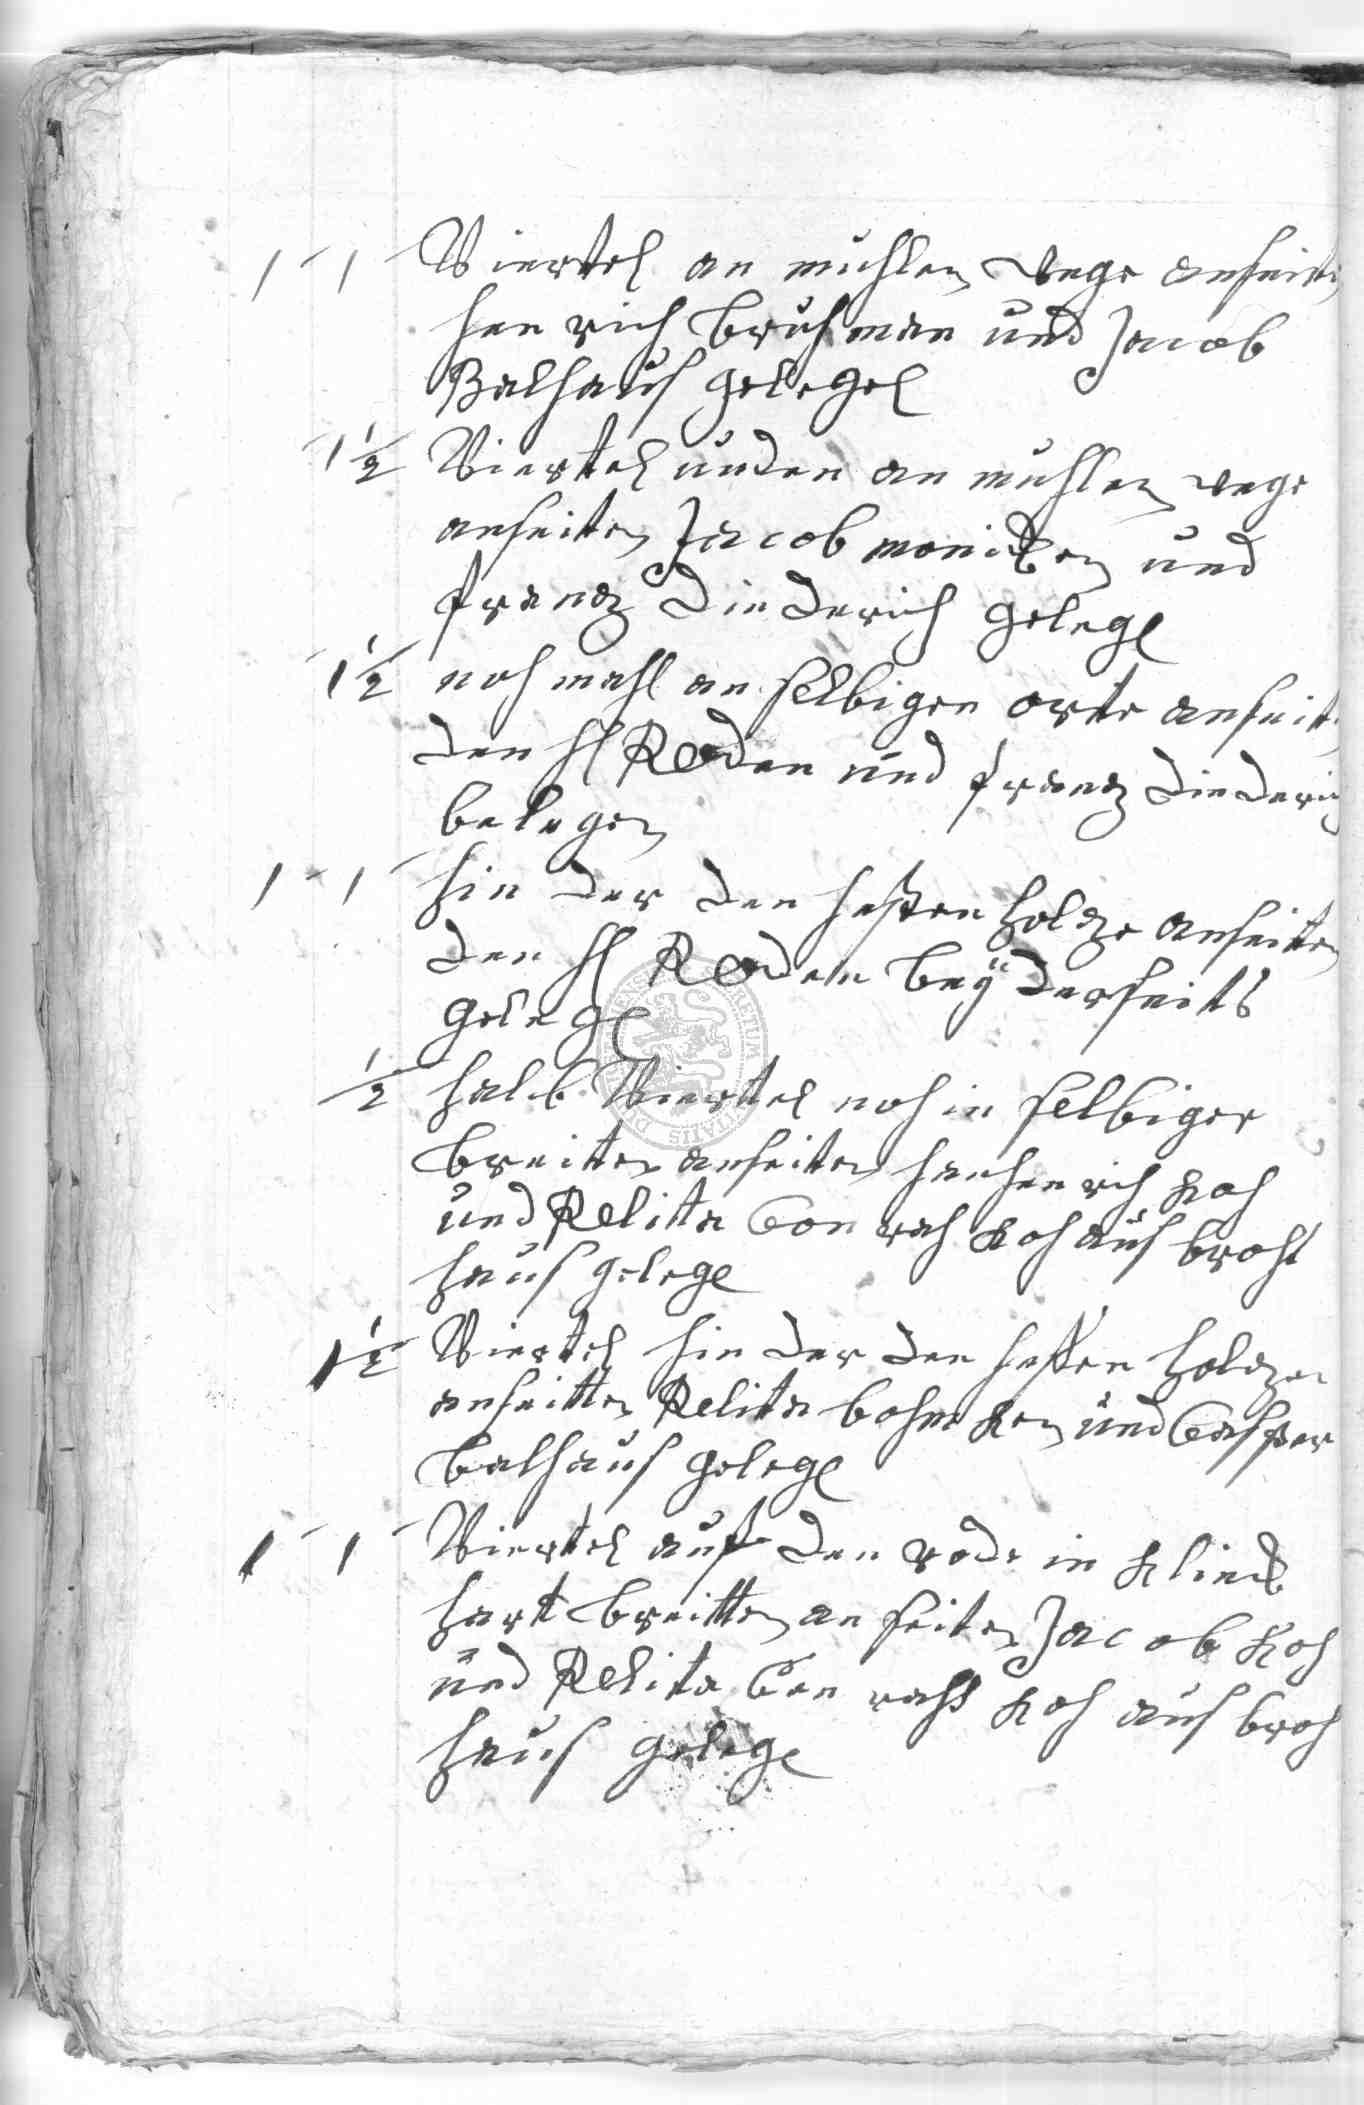 1 - 1 Viertel an muhlen wege anseiten
henrich bruhman und Jacob
Balhaus gelegel
1 1/2 Viertel unden an muhlen wege
anseiten Jacob monicken und
frantz Diederich gelegl
1 1/2 noch mahl an selbigen orte anseit
den hl Roden und frantz Diederich
belegen
1 - 1 hin der den hessen holtze anseiten
den hl Roden beyderseits
gelegl
1/2 halb Viertel noch in selbiger
breiten anseiten henrich Koch
und Relita Conrah Koh aus broht
haus gelege
1 1/2 Viertel hin der den hessen holtze
anseitten Relita bohneken und Casper
balhaus gelegl
1 - 1 Viertel auf den rode in Klinck
hart breitten an seiten Jacob Koh
und Relita Con rahs Koh aus broh
haus gelege